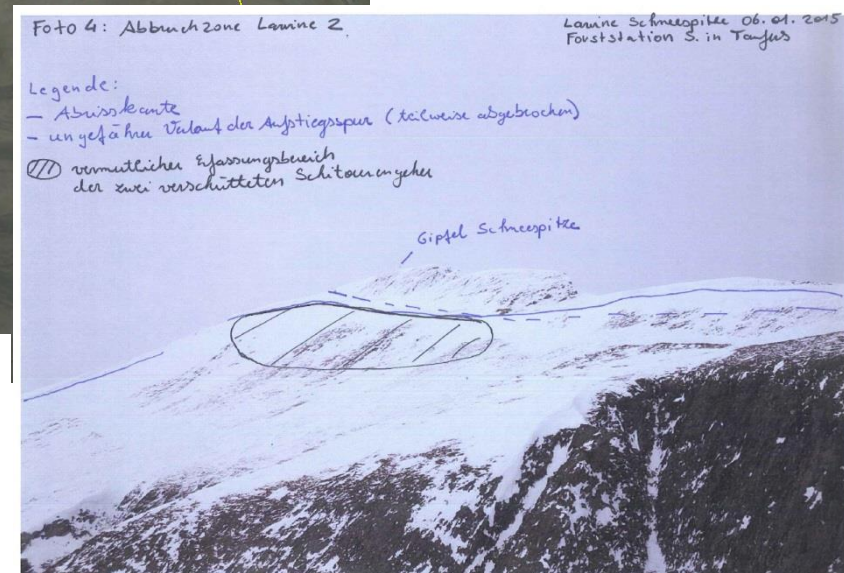 Foto 4: Abbruchzone Lawine 2
Lawine Schneespitze 06.01.2015
Forststation S. in Taufers
Legende:
— Abrisskante
– ungefährer Verlauf der Aufstiegsspur (teilweise abgebrochen)
vermutlicher Erfassungsbereich
der zwei verschütteten Schitourengeher
Gipfel Schneespitze